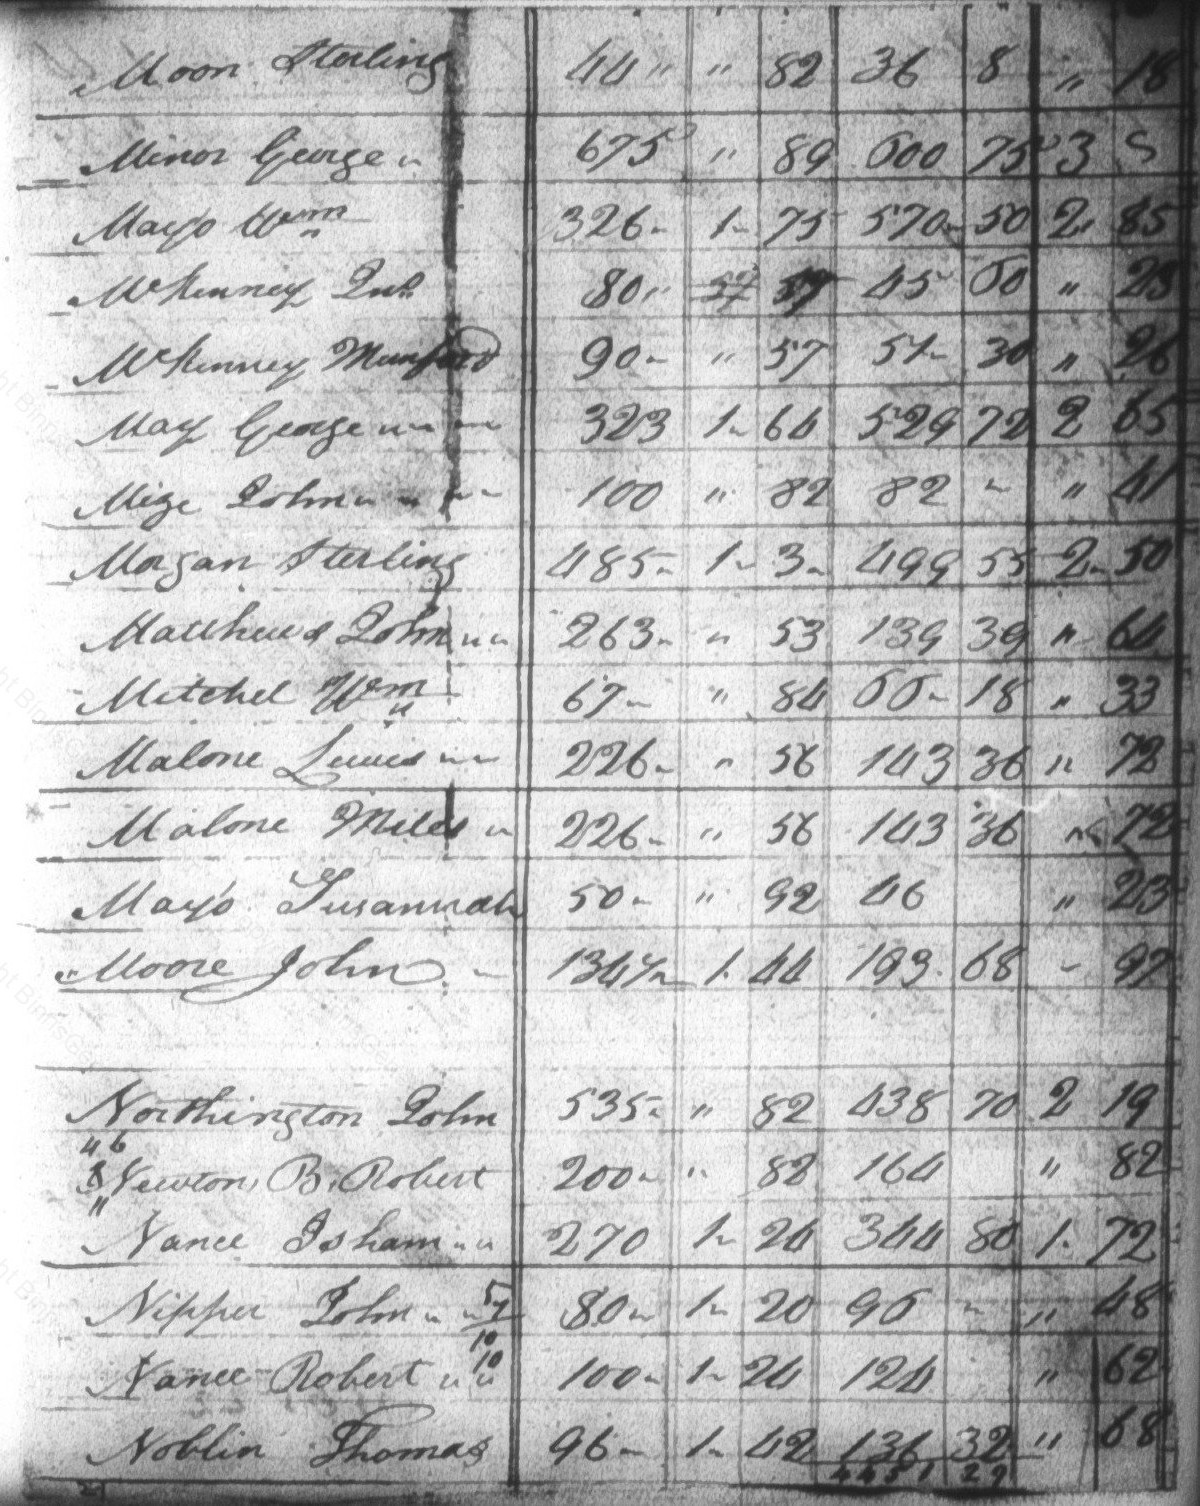 Moon Sterling 44 " " 82 36 8 " 18
Minor George " 675 " 89 600 75 3 S
Mayo Wm 326 1 75 570 50 2 85
McKenney Jno 80 " 57 45 60 " 23
McKenney Munford 90 " 57 51 30 " 26
May George 323 1 64 529 72 2 65
Mize John 100 " 82 82 " 41
Morgan Sterling 485 1 3 499 55 2 50
Matthews John 263 " 53 139 39 " 64
Mitchel Wm 67 " 84 66 18 " 33
Malone Lewis 226 " 56 143 36 " 72
Malone Miles 226 " 56 143 36 " 72
Mayo Susannah 50 " 92 46 " 23
Moore John 134 1 44 193 68 97
Northington John 535 " 82 438 70 2 19
" 6
Newton B. Robert 200 " 82 164 " 82
Nance Isham 270 1 24 344 80 1 72
Nipper John 80 1 20 96 " 48
10
10
Nance Robert 100 1 24 124 " 62
Noblin Thomas 96 1 42 136 32 " 68
4451 29